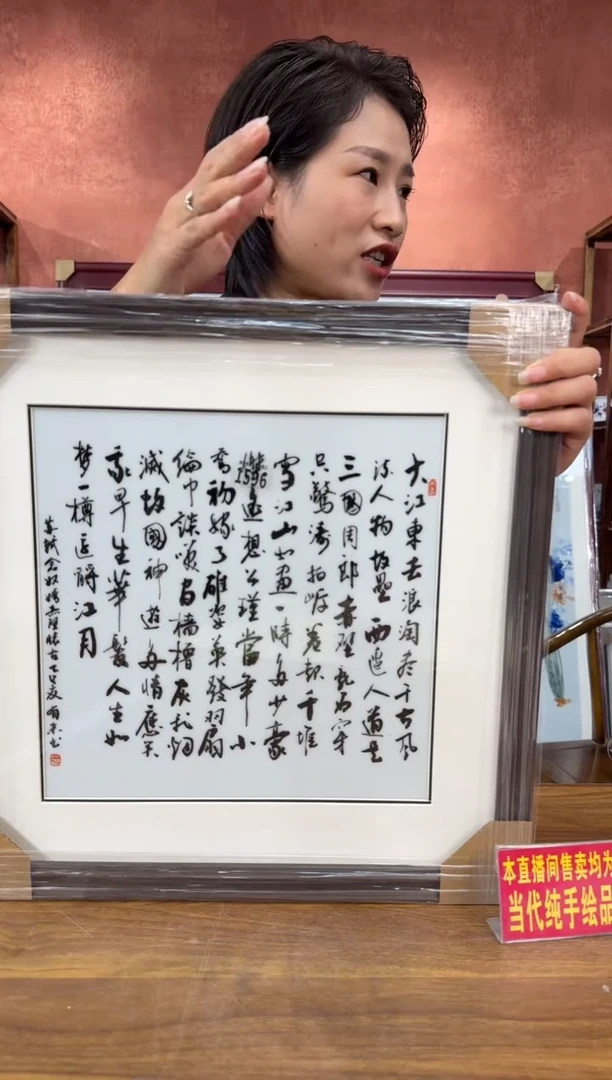 大江東去浪淘尽千古风
流人物故垒西邊人道是
三國周郎赤壁乱石穿
空驚涛拍岸卷起千堆
雪江山如畫一時多少豪
傑遥想公瑾當年小
喬初嫁了雄姿英發羽扇
綸巾談笑间樯橹灰飛烟
滅故國神遊多情應笑
我早生華髮人生如
夢一樽還酹江月
苏轼念奴娇赤壁怀古乙巳夏
本直播间售卖均为
当代纯手绘品